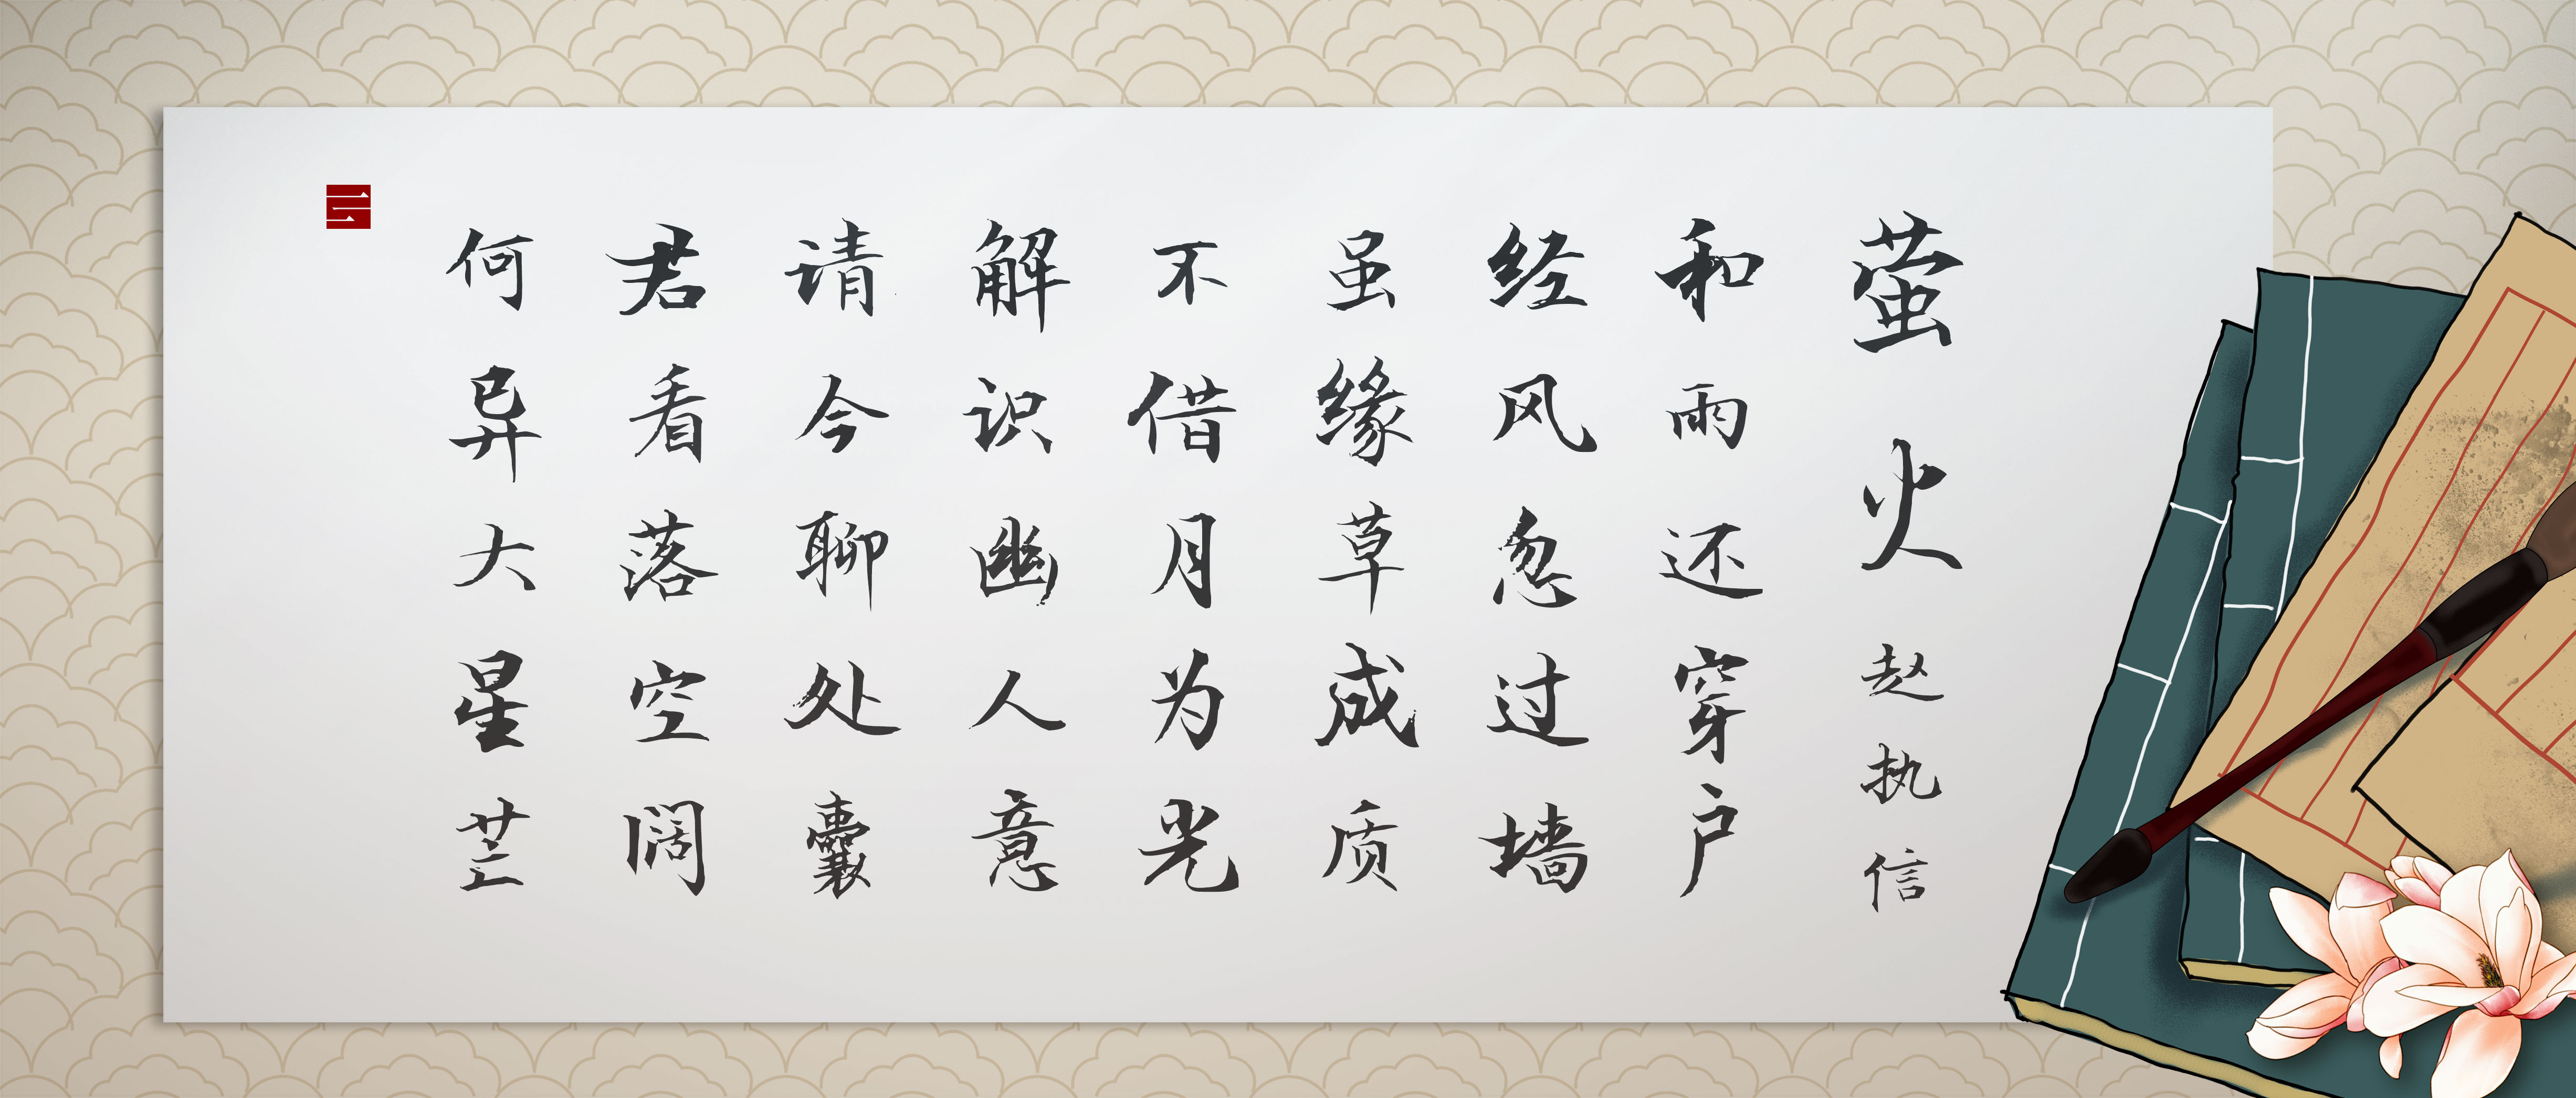 萤火 赵执信
和雨还穿户
经风忽过墙
虽缘草成质
不借月为光
解识幽人意
请今聊处囊
君看落空阔
何异大星芒